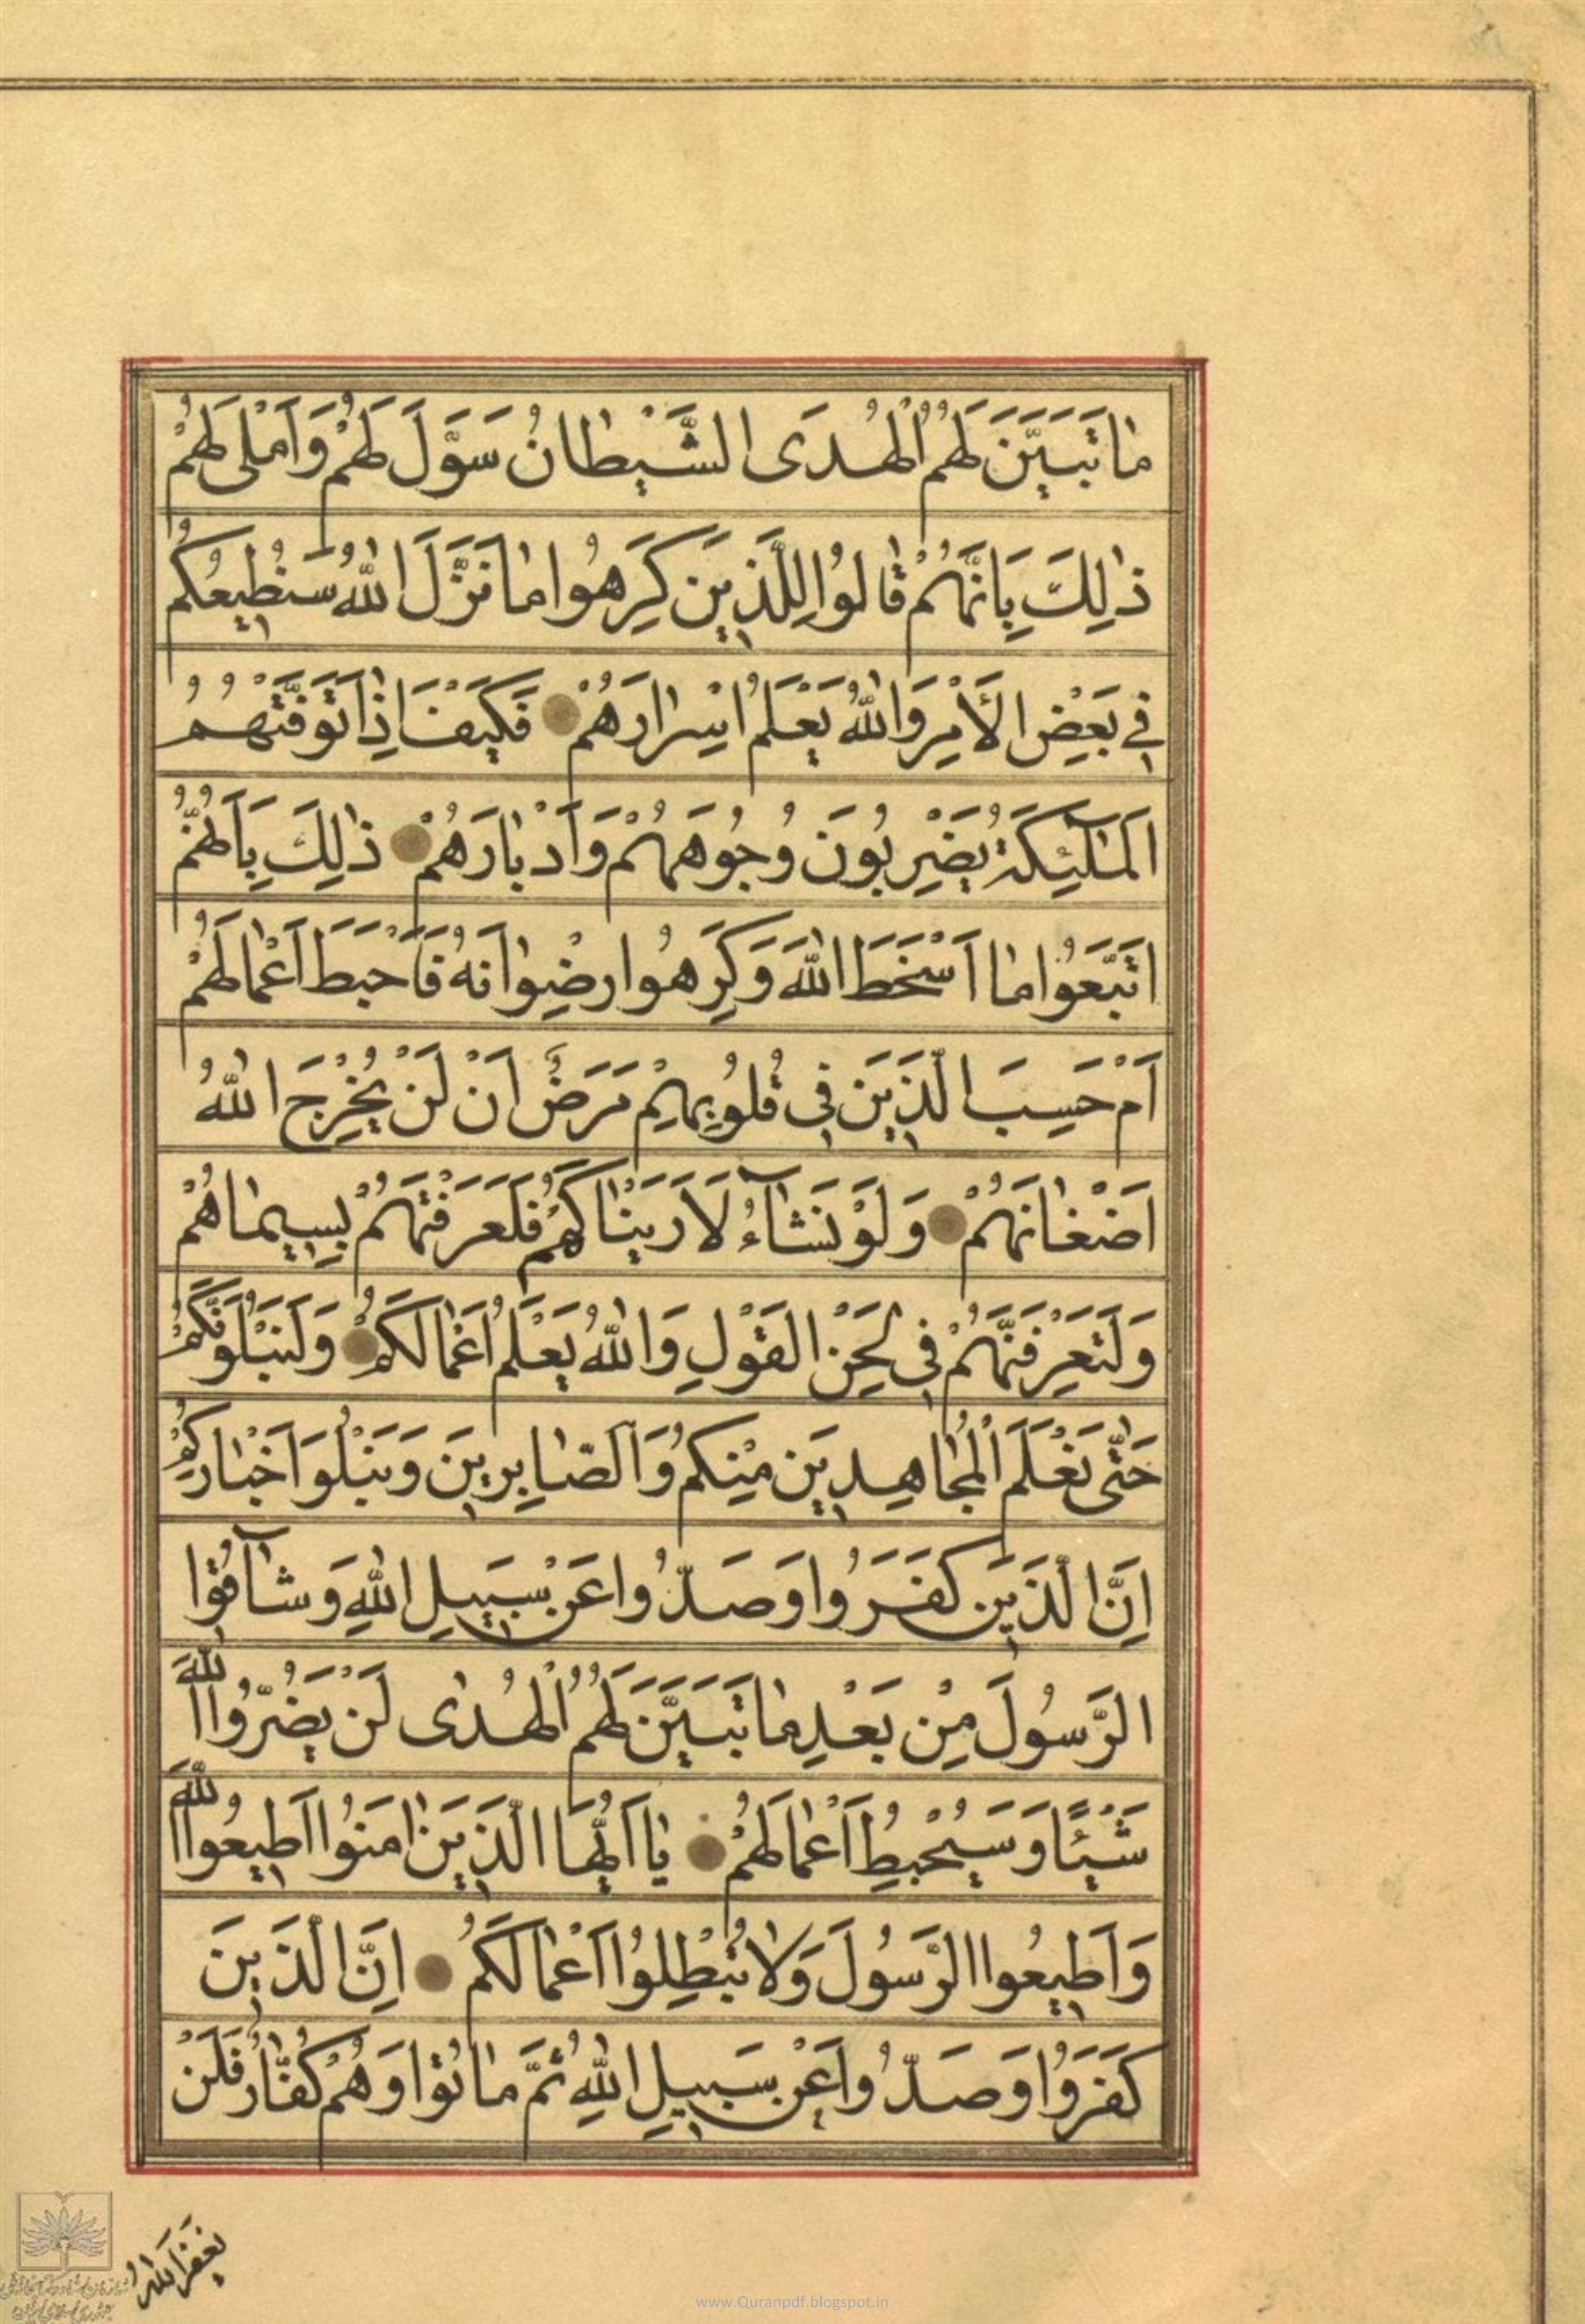 مٰا تَبَيَّنَ لَهُمُ الْهُدَى الشَّيْطٰانُ سَوَّلَ لَهُمْ وَاَمْلٰى لَهُمْ
ذٰلِكَ بِاَنَّهُمْ قٰالُوا لِلَّذِينَ كَرِهُوا مٰا نَزَّلَ اللّٰهُ سَنُطِيعُكُمْ
فِي بَعْضِ الْأَمْرِ وَاللّٰهُ يَعْلَمُ اِسْرٰارَهُمْ فَكَيْفَ اِذٰا تَوَفَّتْهُمُ
الْمَلٰٓئِكَةُ يَضْرِبُونَ وُجُوهَهُمْ وَاَدْبٰارَهُمْ ذٰلِكَ بِاَنَّهُمُ
اتَّبَعُوا مٰا اَسْخَطَ اللّٰهَ وَكَرِهُوا رِضْوٰانَهُ فَاَحْبَطَ اَعْمٰالَهُمْ
اَمْ حَسِبَ الَّذِينَ فِي قُلُوبِهِمْ مَرَضٌ اَنْ لَنْ يُخْرِجَ اللّٰهُ
اَضْغٰانَهُمْ وَلَوْ نَشٰآءُ لَاَرَيْنٰاكَهُمْ فَلَعَرَفْتَهُمْ بِسِيمٰاهُمْ
وَلَتَعْرِفَنَّهُمْ فِي لَحْنِ الْقَوْلِ وَاللّٰهُ يَعْلَمُ اَعْمٰالَكُمْ وَلَنَبْلُوَنَّكُمْ
حَتّٰى نَعْلَمَ الْمُجٰاهِدِينَ مِنْكُمْ وَالصّٰابِرِينَ وَنَبْلُوَا اَخْبٰارَكُمْ
اِنَّ الَّذِينَ كَفَرُوا وَصَدُّوا عَنْ سَبِيلِ اللّٰهِ وَشٰآقُّوا
الرَّسُولَ مِنْ بَعْدِ مٰا تَبَيَّنَ لَهُمُ الْهُدٰى لَنْ يَضُرُّوا اللّٰهَ
شَيْئًا وَسَيُحْبِطُ اَعْمٰالَهُمْ يٰا اَيُّهَا الَّذِينَ اٰمَنُوا اَطِيعُوا اللّٰهَ
وَاَطِيعُوا الرَّسُولَ وَلٰا تُبْطِلُوا اَعْمٰالَكُمْ اِنَّ الَّذِينَ
كَفَرُوا وَصَدُّوا عَنْ سَبِيلِ اللّٰهِ ثُمَّ مٰاتُوا وَهُمْ كُفّٰارٌ فَلَنْ
يَغْفِرَ اللّٰهُ
www.Quranpdf.blogspot.in